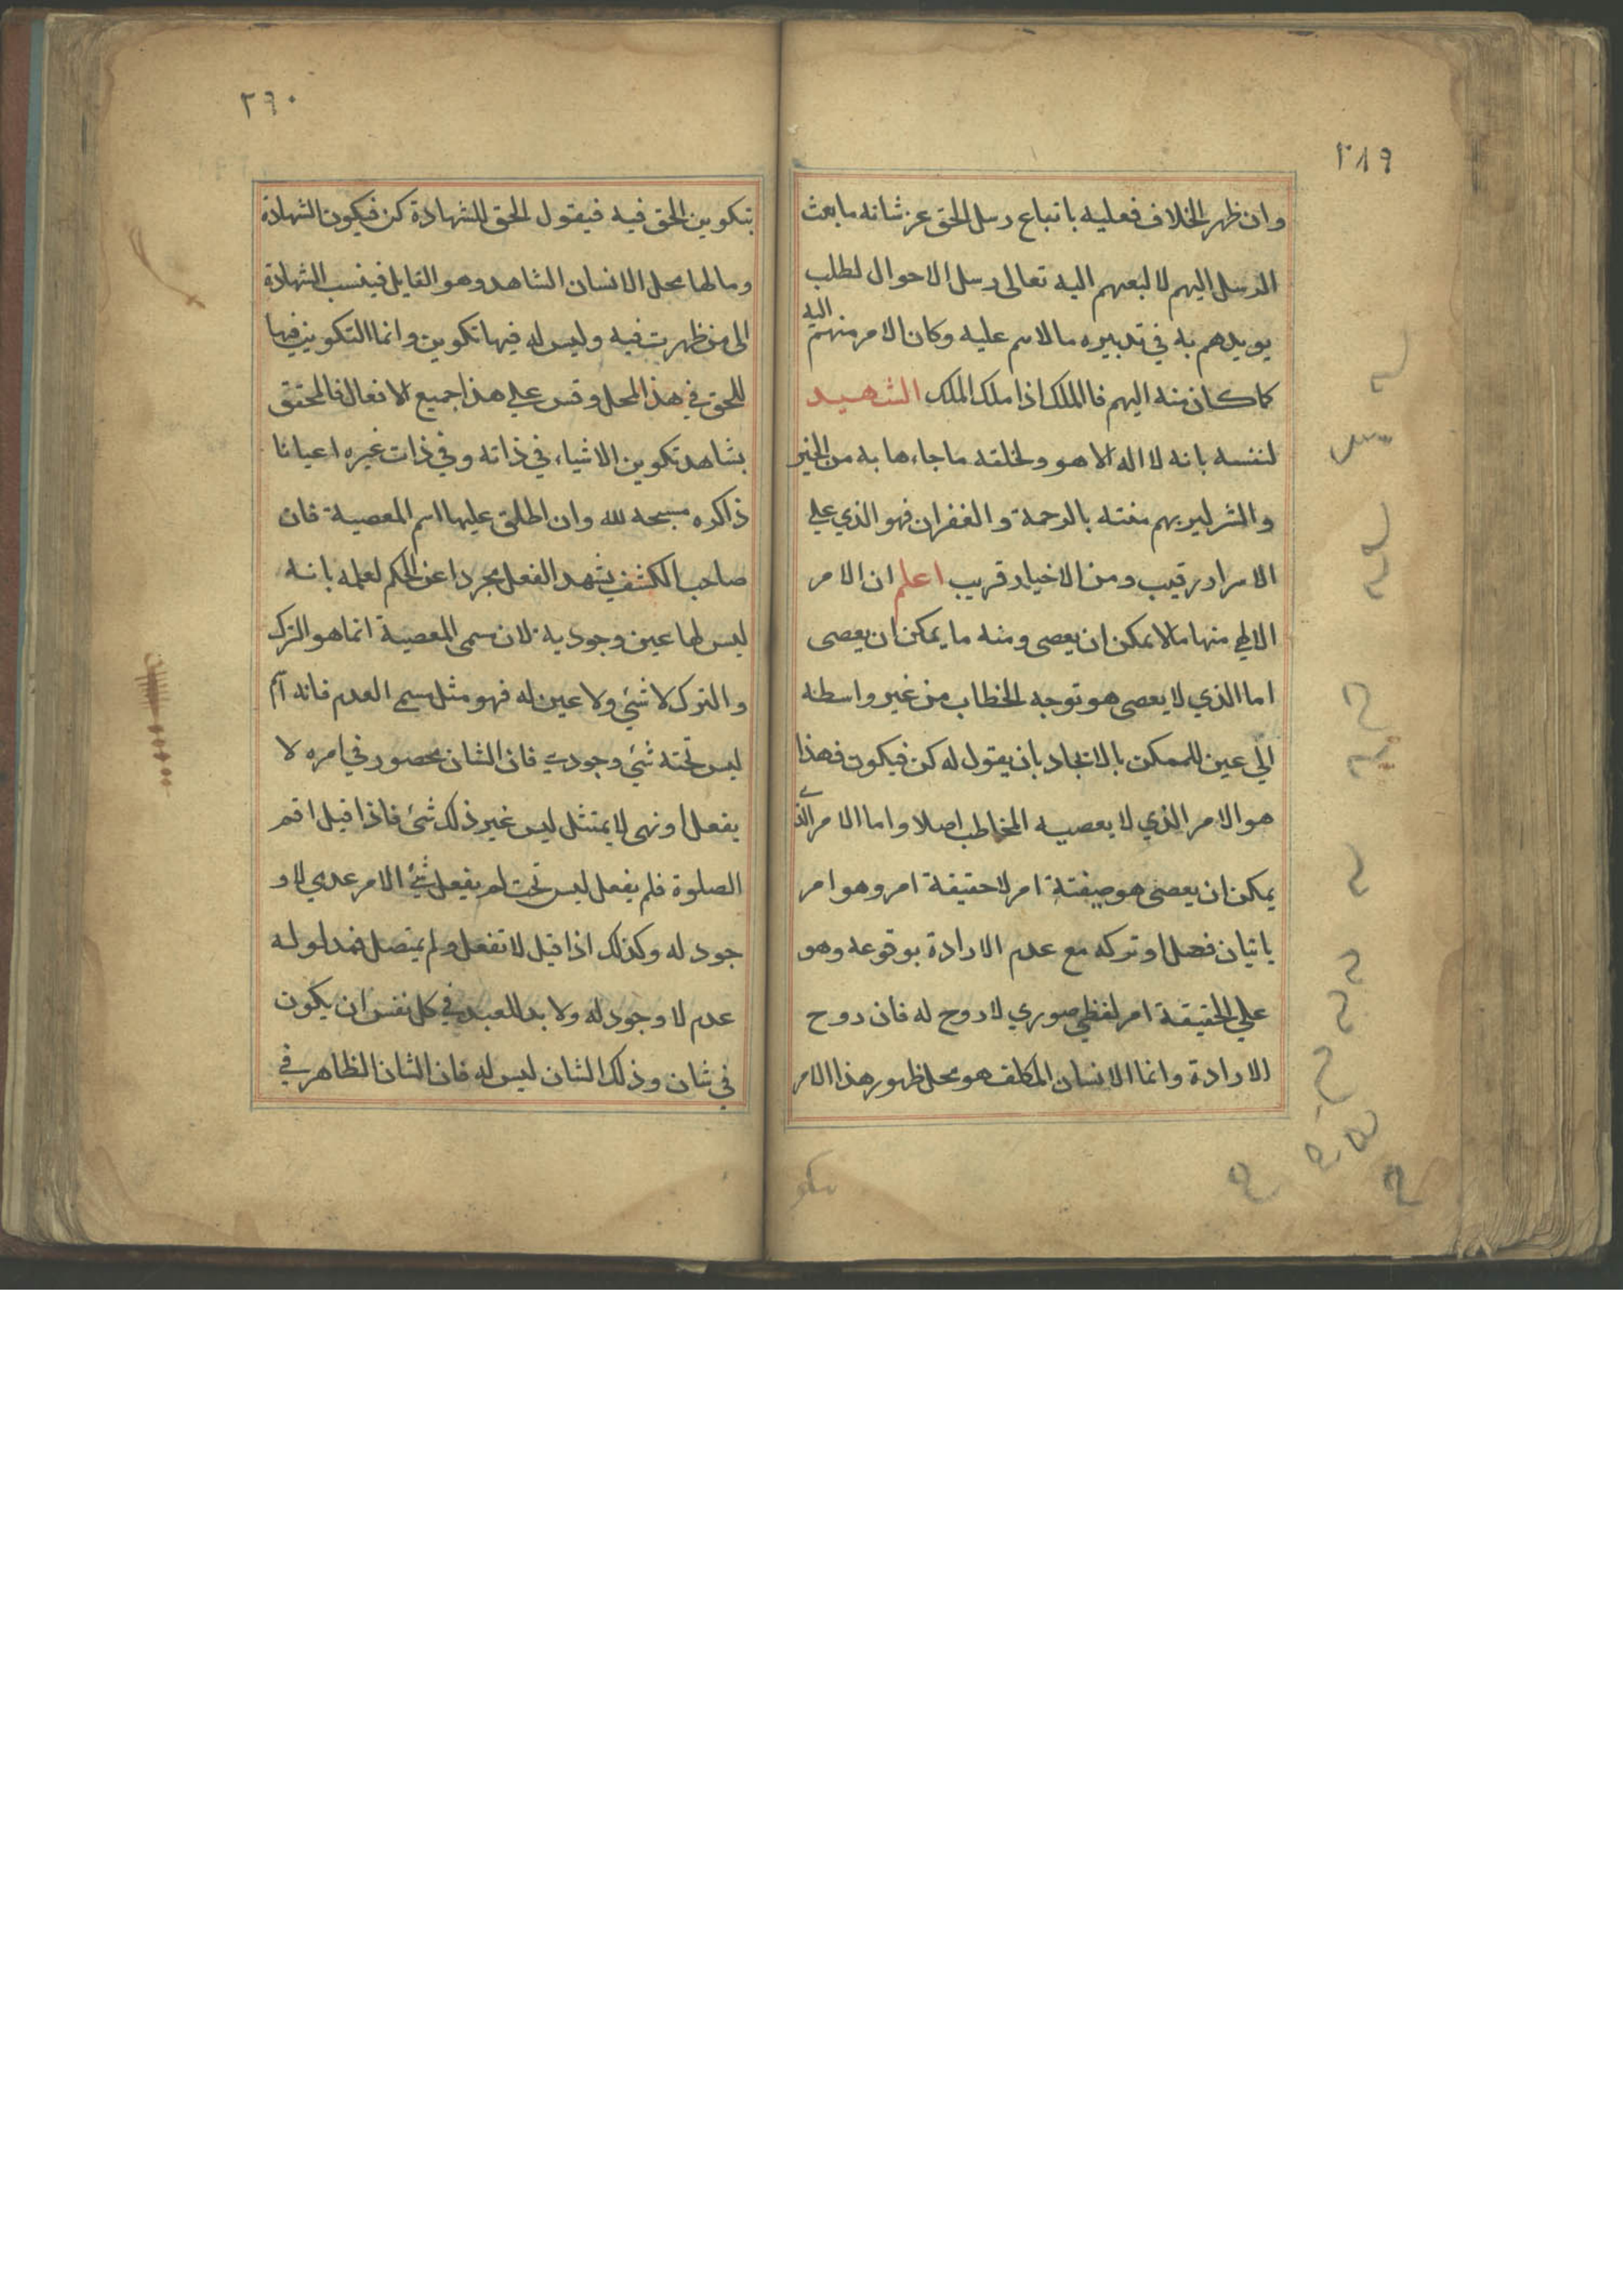 ٢٨٩
وان ظهر الخلاف فعليه باتباع رسل الحق عز شانه ما بعث
الرسل اليهم لا لبعثهم اليه تعالى رسل الاحوال لطلب
يويدهم به في تدبيره ما لاسم عليه وكان الامر منهم اليه
كما كان منه اليهم فالملك اذا ملك الملك الشهيد
لنفسه بانه لا اله الا هو ولخلقه ما جاءها به من الخير
والشر ليريهم منته بالرحمة والغفران فهو الذي علي
الاسرار رقيب ومن الاخيار قريب اعلم ان الامر
الالهي منها ما لا يمكن ان يعصى ومنه ما يمكن ان يعصى
اما الذي لا يعصى هو توجه الخطاب من غير واسطه
الي عين الممكن بالايجاد بان يقول له كن فيكون فهذا
هو الامر الذي لا يعصيه المخاطب اصلا واما الامر الذي
يمكن ان يعصى هو صيغة امر لا حقيقة امر وهو امر
باتيان فعل او تركه مع عدم الارادة بوقوعه وهو
علي الحقيقة امر لفظي صوري لا روح له فان روح
الارادة وانما الانسان المكلف هو محل ظهور هذا الامر
٢٩٠
بتكوين الحق فيه فيقول الحق للشهادة كن فيكون الشهادة
وما لها محل الا لانسان الشاهد وهو القايل فينسب الشهادة
الى من ظهرت فيه وليس له فيها تكوين وانما التكوين فيها
للحق في هذا المحل وقس علي هذا جميع الافعال فالمحقق
يشاهد تكوين الاشياء في ذاته وفي ذات غيره اعيانا
ذاكره مسبحه لله وان اطلق عليها اسم المعصية فان
صاحب الكشف يشهد الفعل مجردا عن الحكم لعلمه بانه
ليس لها عين وجودية لان مسمى المعصية انما هو الترك
والترك لا شئ ولا عين له فهو مثل مسمى العدم فانه اسم
ليس تحته شئ وجودي فان الشان محصور في امره لا
يفعل او نهى لا يمتثل ليس غير ذلك شئ فاذا قيل اقم
الصلوة فلم يفعل ليس تحت لم يفعل شئ الا امر عدمي لا و
جود له وكذلك اذا قيل لا تفعل ولم يمتصل فمدلوله
عدم لا وجود له ولا بد للعبد في كل نفس ان يكون
في شان وذلك الشان ليس له فان الشان الظاهر في